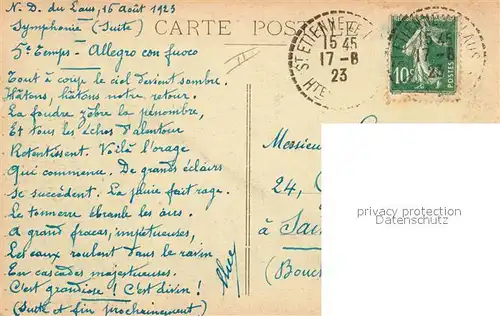 N. D. du Laus, 16 Août 1923
Symphonie (Suite)
5e Temps - Allegro con fuoco
CARTE POSTALE
Tout à coup le ciel devient sombre.
Hâtons, hâtons notre retour.
La foudre zèbre la pénombre,
Et tous les échos d'alentour
Retentissent. Voilà l'orage
Qui commence. De grands éclairs
Se succèdent. La pluie fait rage.
Le tonnerre ébranle les airs.
A grand fracas, impétueuses,
Les eaux roulent dans le ravin
En cascades majestueuses.
C'est grandiose! C'est divin!
(Suite et fin prochainement)
ST ETIENNE
15 45
17-8
23
HTE
15 45
23
10c
POSTES
Messieu
24,
à Sai
(Bouc
privacy protection